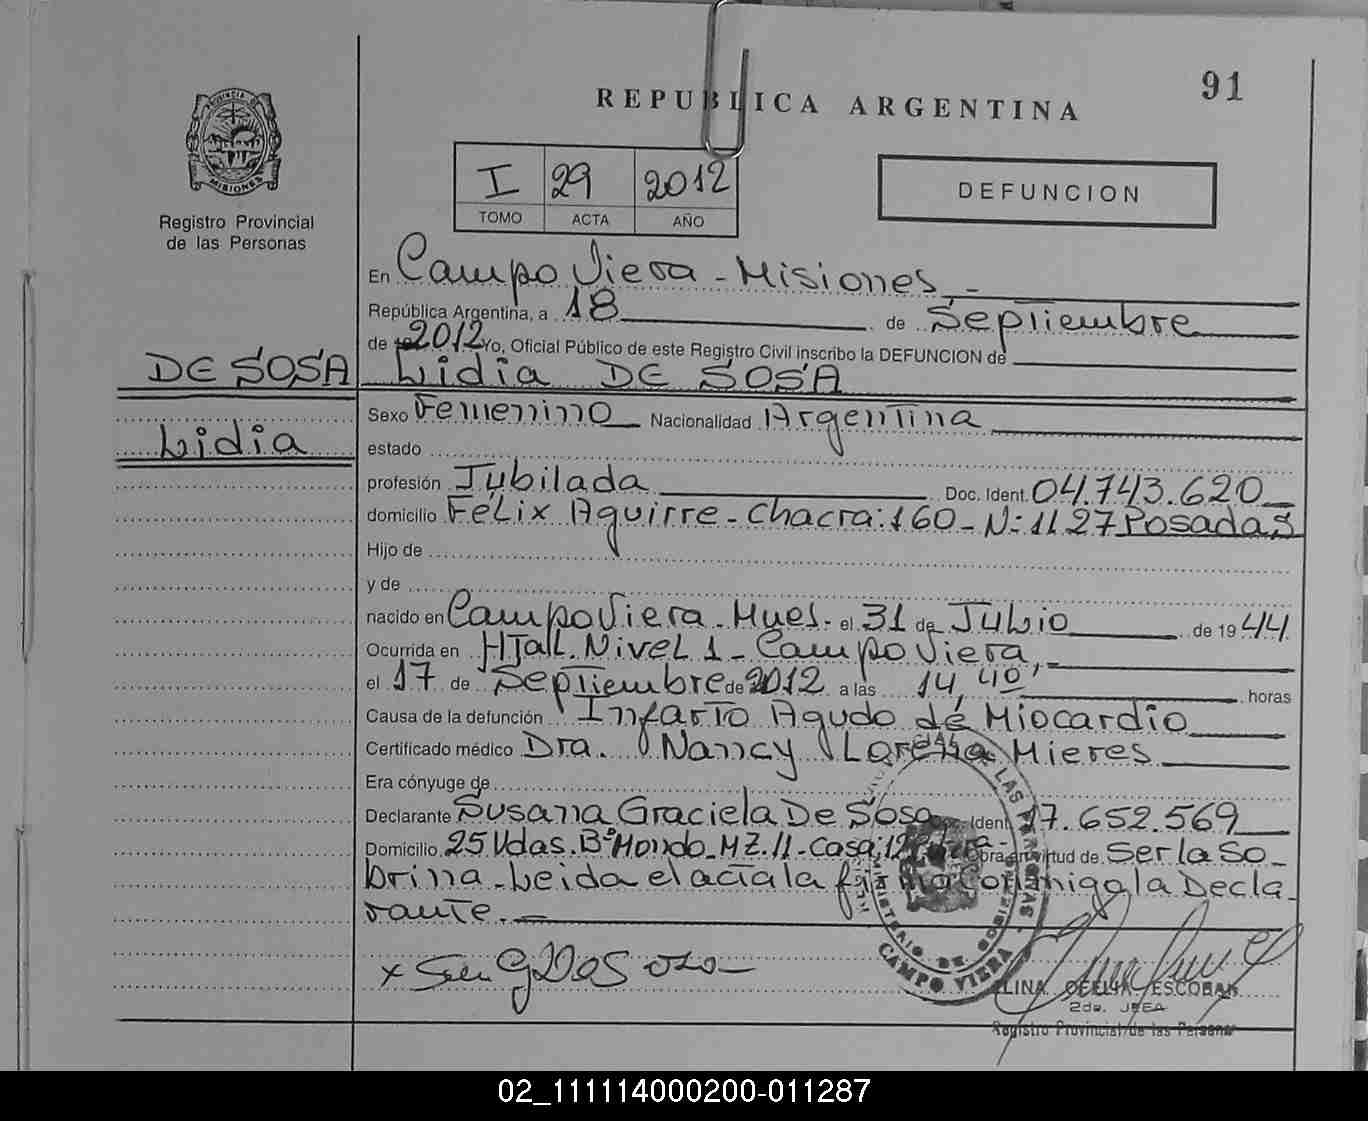 91
REPUBLICA ARGENTINA
I 29 2012
TOMO ACTA AÑO
DEFUNCION
Registro Provincial
de las Personas
En Campo Viera - Misiones -
República Argentina, a 18 de Septiembre
de 2012 Yo, Oficial Público de este Registro Civil inscribo la DEFUNCION de
DE SOSA
Lidia DE SOSA
Sexo Femenino Nacionalidad Argentina
Lidia
estado
profesión Jubilada Doc. Ident. 04.743.620
domicilio Félix Aguirre - Chacra: 160 - N: 1127 Posadas
Hijo de
y de
nacido en Campo Viera - Mnes. el 31 de Julio de 19 44
Ocurrida en HJal. Nivel 1 - Campo Viera, -
el 17 de Septiembre de 2012 a las 14,40' horas
Causa de la defunción Infarto Agudo de Miocardio
Certificado médico Dra. Nancy Lorena Mieres
Era cónyuge de
Declarante Susana Graciela De Sosa Ident. 17.652.569
Domicilio 25 Vdas. Bº Mondo - MZ. 11 - Casa 12 Obra en virtud de Ser la So-
brina - Leida el acta la firma conmigo la Decla
rante. -
PROVINCIA DE
MISIONES
LAS PERSONAS
MINISTERIO DE GOBIERNO
CAMPO VIERA
LINA OFELIA ESCOBAR
2da. JEFA
Registro Provincial de las Personas
02_111114000200-011287